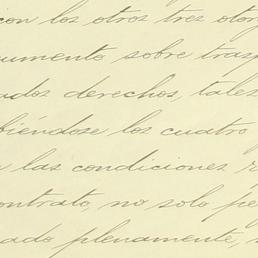 con los otros tres otor
cumento sobre trasp
ados derechos, tales
biéndose los cuatro
las condiciones r
ontrato, no solo pe
ado plenamente,